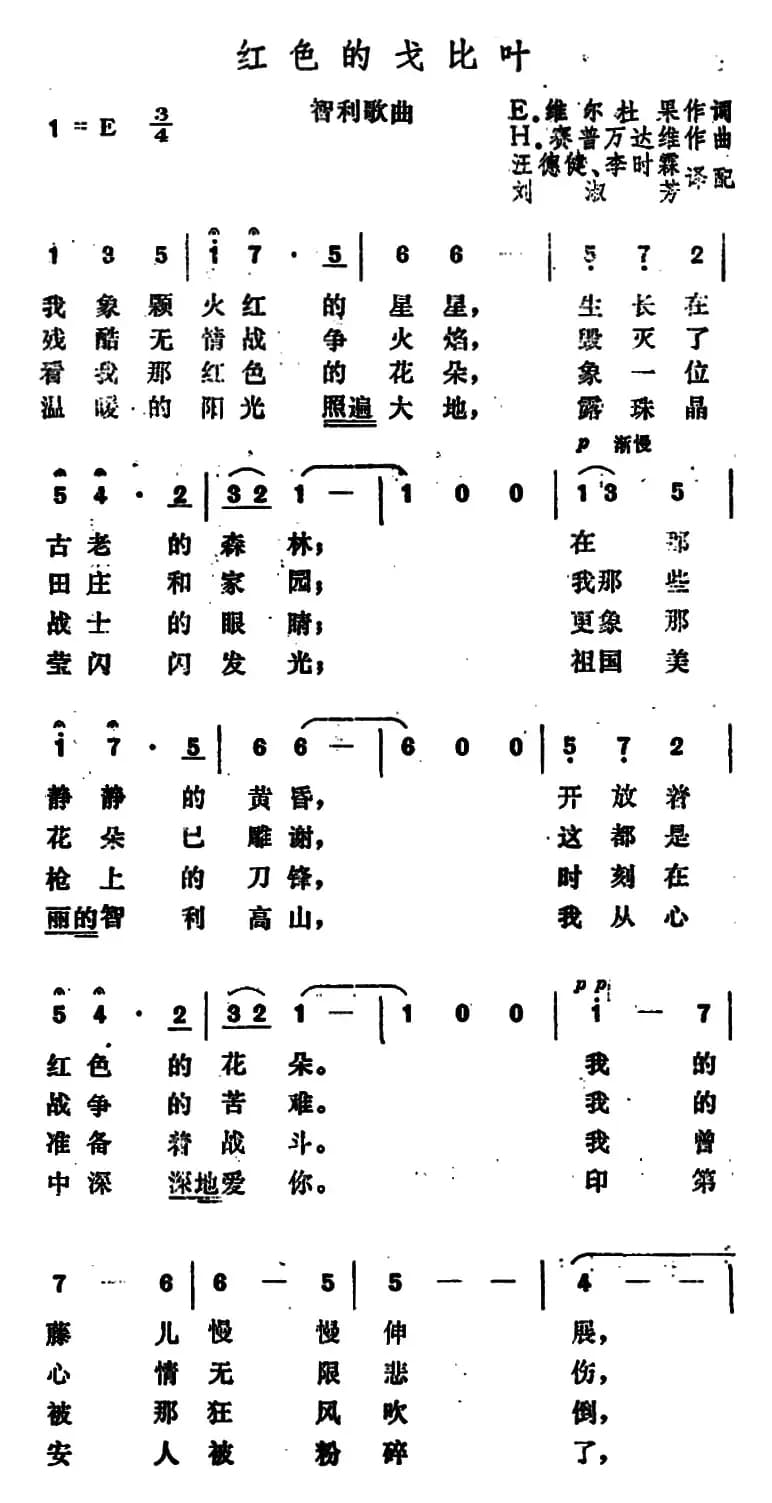 红色的戈比叶
1 = E 3/4
智利歌曲
E.维尔杜果作词
H.赛普万达维作曲
汪德健、李时霖
刘淑芳 译配
1 3 5 | i 7 · 5 | 6 6 — | 5 7 2 |
我象颗火红的星星，生长在
残酷无情战争火焰，毁灭了
看我那红色的花朵，象一位
温暖的阳光照遍大地，露珠晶
p 渐慢
5 4 · 2 | 3 2 1 — | 1 0 0 | 1 3 5 |
古老的森林；在那
田庄和家园；我那些
战士的眼睛；更象那
莹闪闪发光；祖国美
i 7 · 5 | 6 6 — | 6 0 0 | 5 7 2 |
静静的黄昏，开放着
花朵已雕谢，这都是
枪上的刀锋，时刻在
丽的智利高山，我从心
pp
5 4 · 2 | 3 2 1 — | 1 0 0 | i — 7 |
红色的花朵。我的
战争的苦难。我的
准备着战斗。我曾
中深深地爱你。印第
7 — 6 | 6 — 5 | 5 — | 4 — — |
藤儿慢慢伸展，
心情无限悲伤，
被那狂风吹倒，
安人被粉碎了，